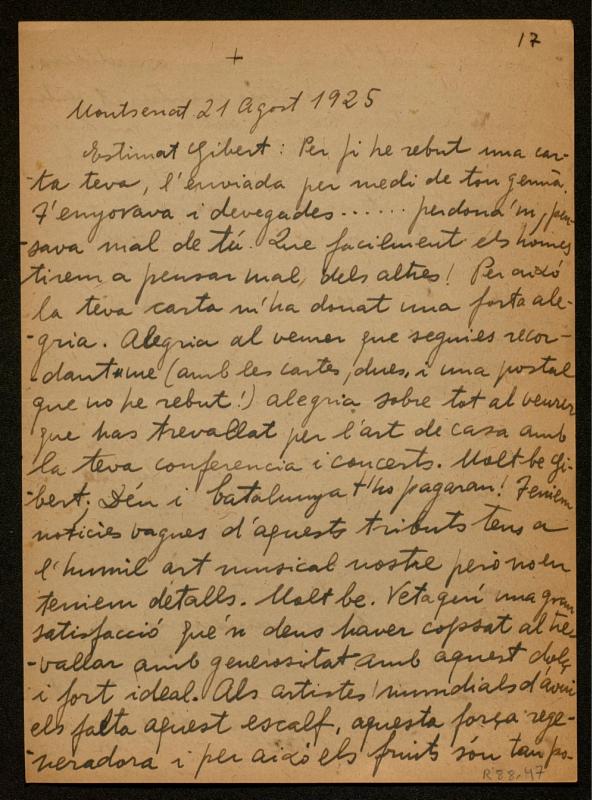 17
+
Montserrat 21 Agost 1925
Estimat Gibert: Per fi he rebut una car-
-ta teva, l'enviada per medi de ton germà.
T'enyorava i devegades...... perdona'm, pen-
-sava mal de tú. Que facilment els homes
tirem a pensar mal, dels altres! Per aixó
la teva carta m'ha donat una forta ale-
-gria. Alegria al veurer que seguies recor-
-dantme (amb les cartes, dues, i una postal
que no he rebut!) alegria sobre tot al veurer
que has trevallat per l'art de casa amb
la teva conferencia i concerts. Molt be Gi-
-bert. Déu i Catalunya t'ho pagaran! Teniem
noticies vagues d'aquests tributs teus a
l'humil art musical nostre però no en
teniem détalls. Molt be. Vetaquí una gran
satisfacció que'n deus haver copsat al tre-
-vallar amb generositat amb aquest dolç
i fort ideal. Als artistes mundials d'avui
els falta aquest escalf, aquesta força rege-
-neradora i per aixó els fruits són tan po-
R 88.47